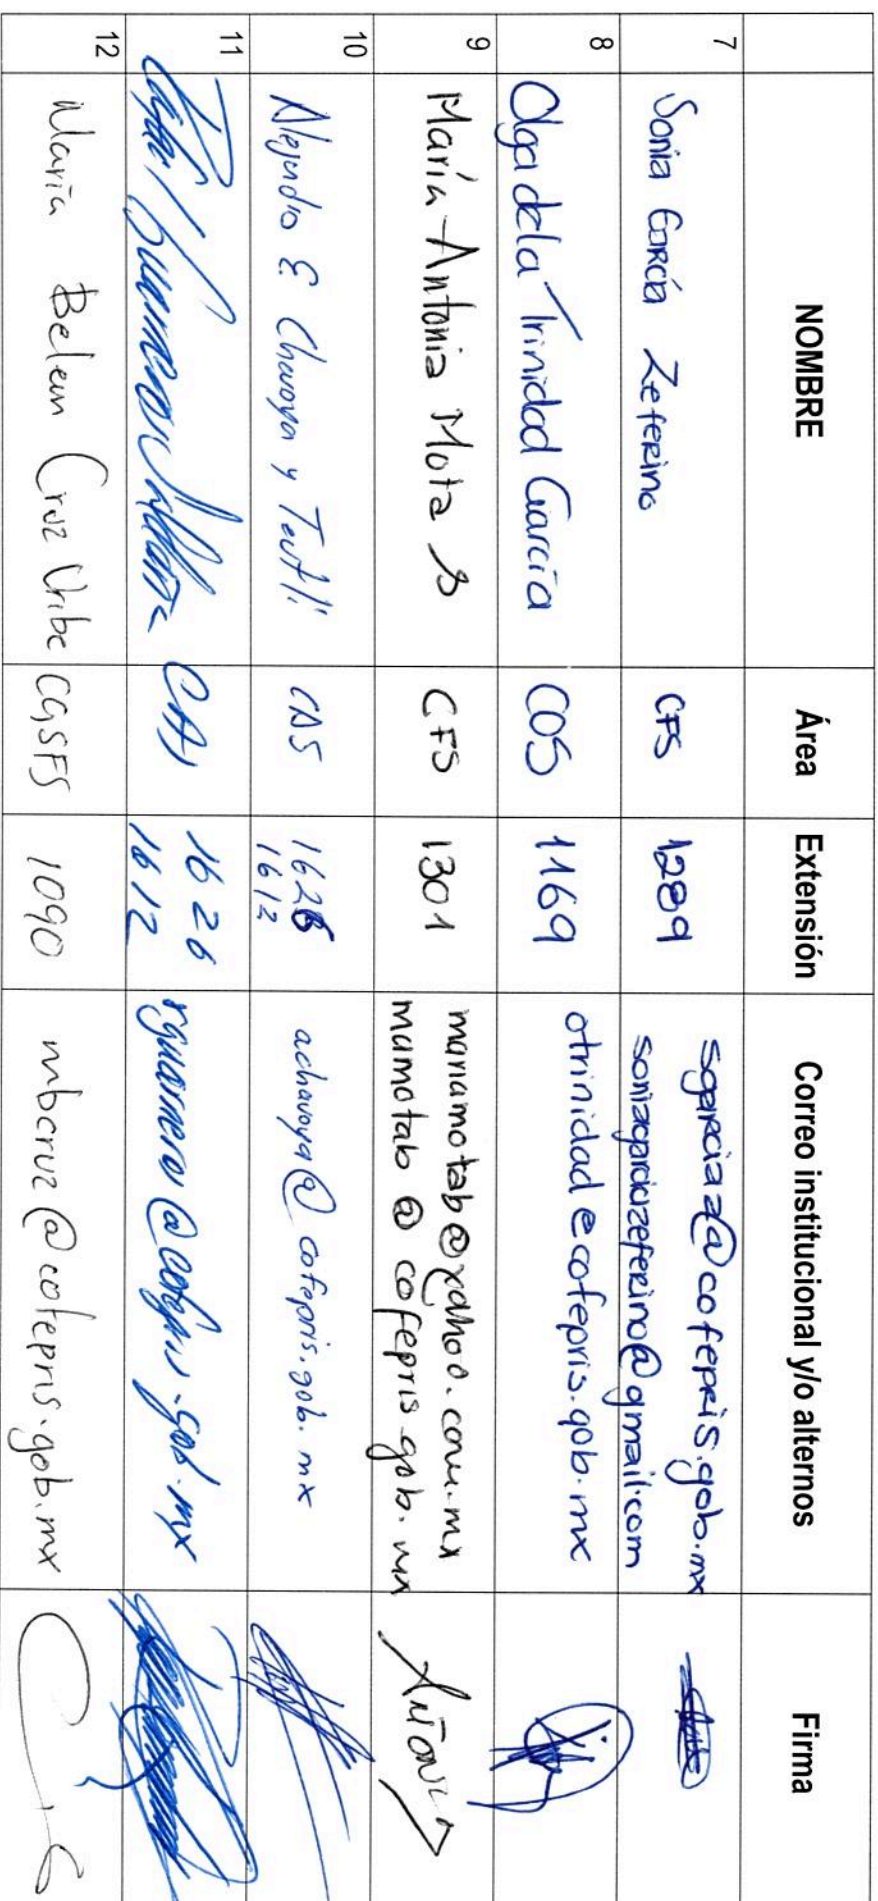 NOMBRE Área Extensión Correo institucional y/o alternos Firma
7 Sonia García Zeferino CFS 1289 sgarciaz@cofepris.gob.mx
soniagarciazeferino@gmail.com
8 Olga de la Trinidad García COS 1169 otrinidad@cofepris.gob.mx
9 María Antonia Mota S CFS 1301 mariamotab@yahoo.com.mx
mamotab@cofepris.gob.mx
10 Alejandro E Chavoya y Teutli CAS 1626 achavoya@cofepris.gob.mx
1612
11 1626 @cofepris.gob.mx
1612
12 María Belem Cruz Uribe CGSFS 1090 mbcruz@cofepris.gob.mx